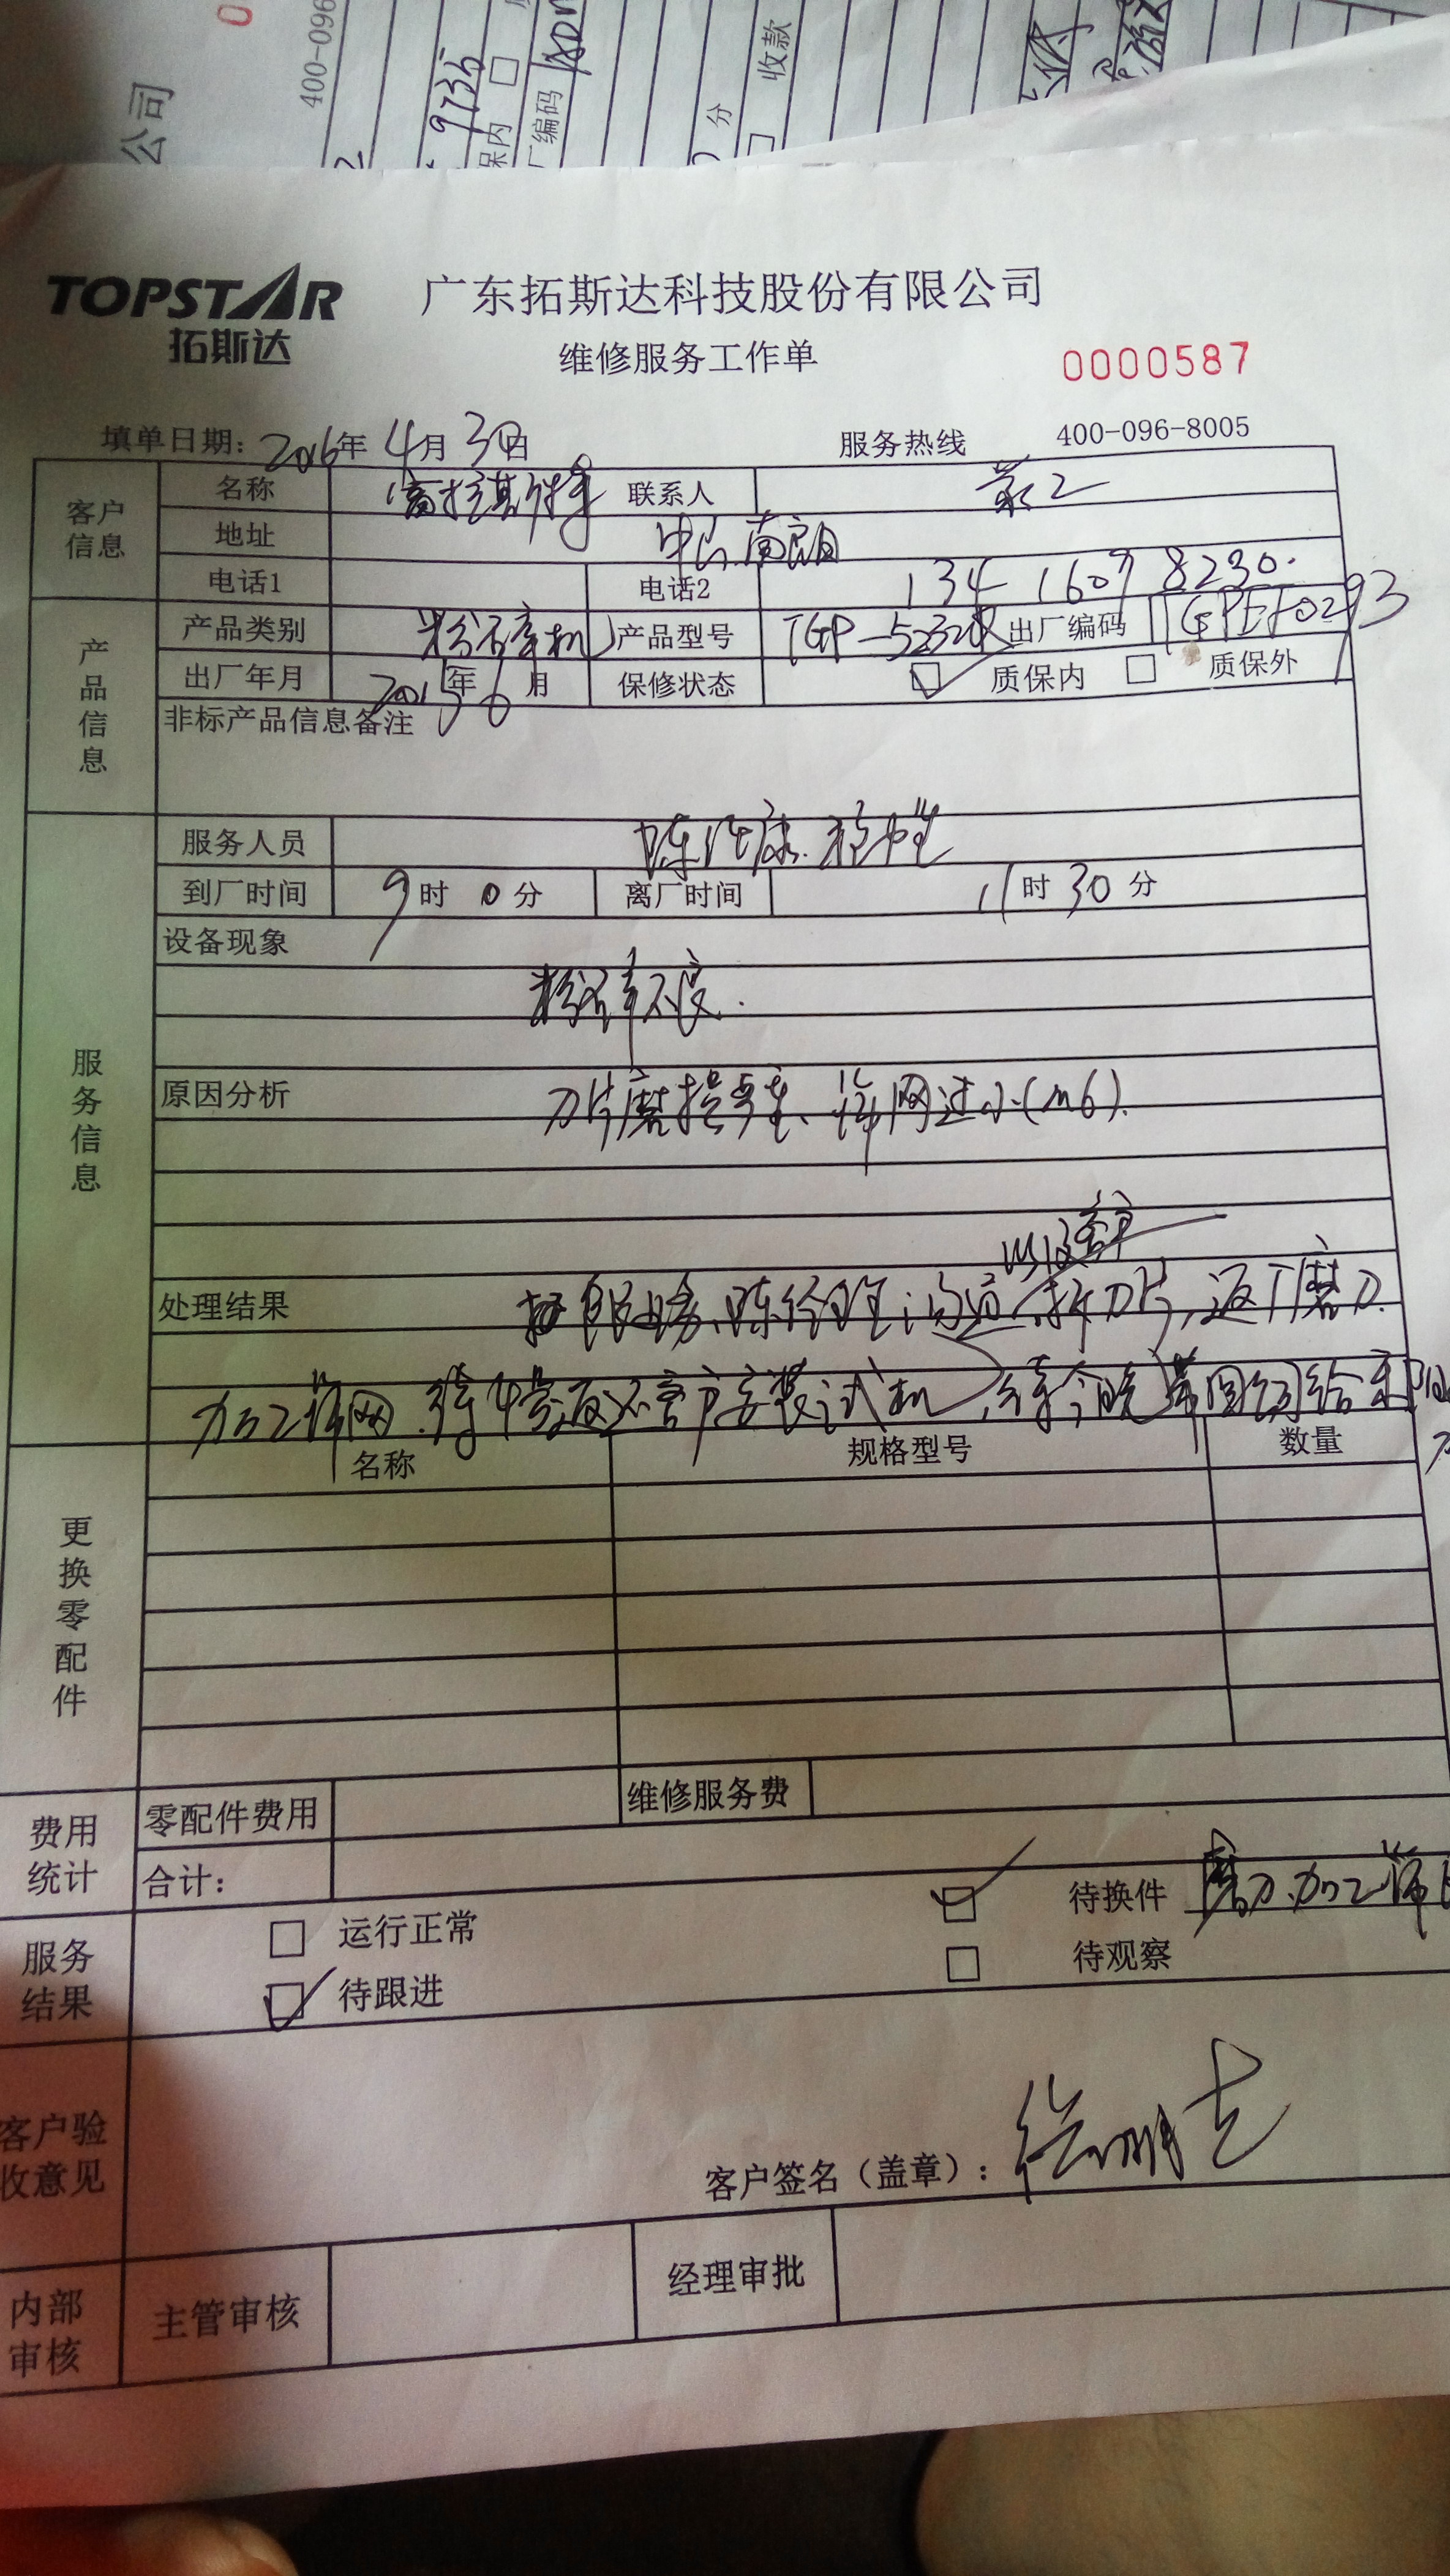 公司
400-096
9735
保内 □
厂编码
分
收款
TOPSTAR
拓斯达
广东拓斯达科技股份有限公司
维修服务工作单
0000587
填单日期: 2016年 4月 3日
服务热线 400-096-8005
客户信息
名称 联系人
地址 中山南朗
电话1 电话2 134 1609 8230.
产品信息
产品类别 粉碎机 产品型号 TGP-5232 出厂编码
出厂年月 2015年6月 保修状态 ☑ 质保内 □ 质保外
非标产品信息备注
服务信息
服务人员
到厂时间 9时 0分 离厂时间 11时30分
设备现象
粉碎不良.
原因分析 刀片磨损严重、筛网过小(m6).
以及客户
处理结果 服务、陈经理沟通 拆刀片,返厂磨刀.
加工筛网.待4号返还客户安装试机,待今晚带回公司给
更换零配件
名称 规格型号 数量
费用统计
零配件费用 维修服务费
合计:
服务结果
□ 运行正常 ☑ 待换件 磨刀.加工筛
☑ 待跟进 □ 待观察
客户验收意见
客户签名（盖章）:
内部审核
主管审核 经理审批